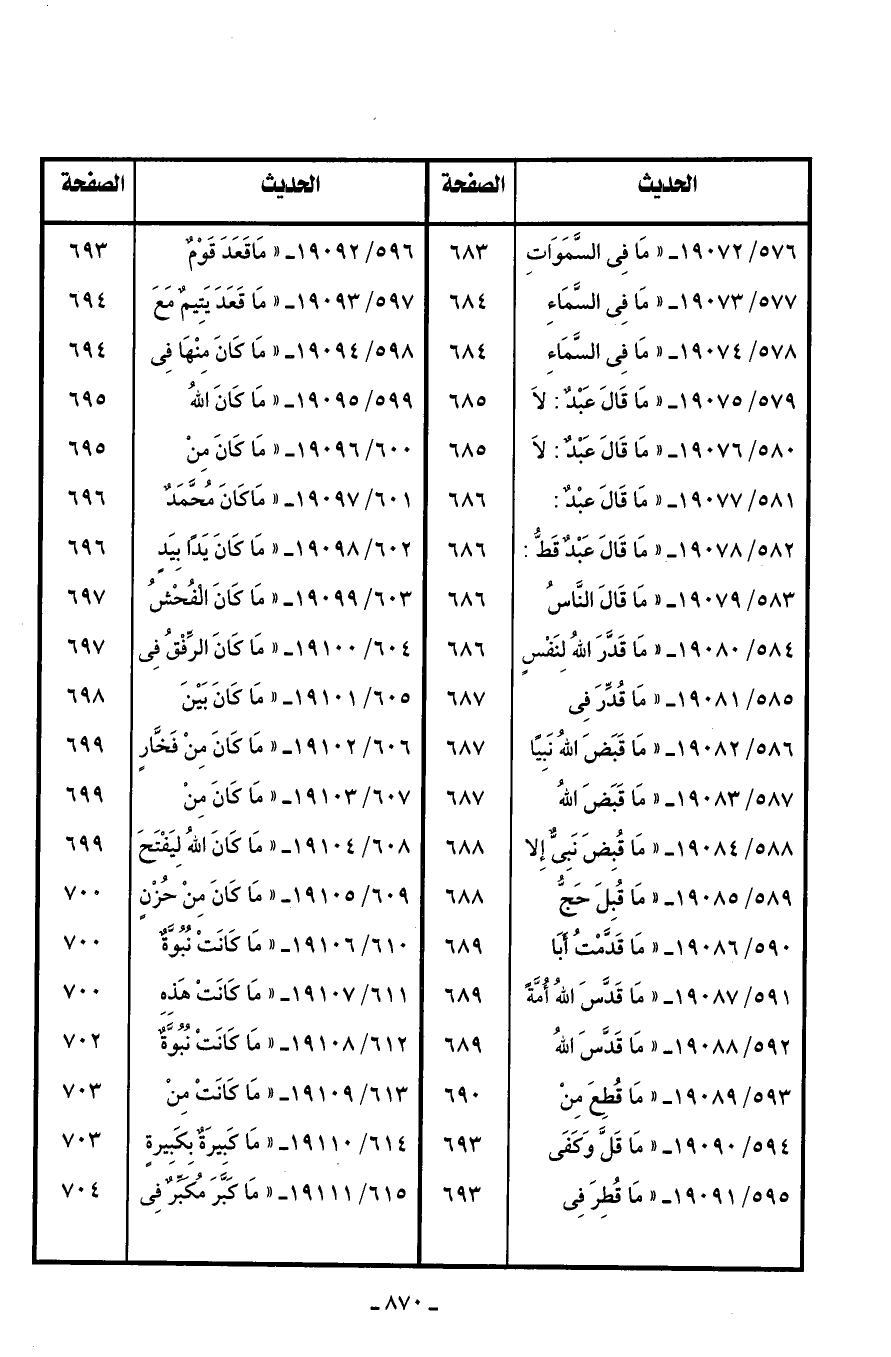 الحديث | الصفحة | الحديث | الصفحة
٥٧٦/ ١٩٠٧٢ـ « مَا فِى السَّمَوَاتِ | ٦٨٣ | ٥٩٦/ ١٩٠٩٢ـ « مَاقَعَدَ قَوْمٌ | ٦٩٣
٥٧٧/ ١٩٠٧٣ـ « مَا فِى السَّمَاءِ | ٦٨٤ | ٥٩٧/ ١٩٠٩٣ـ « مَا قَعَدَ يَتِيمٌ مَعَ | ٦٩٤
٥٧٨/ ١٩٠٧٤ـ « مَا فِى السَّمَاءِ | ٦٨٤ | ٥٩٨/ ١٩٠٩٤ـ « مَا كَانَ مِنْهَا فِى | ٦٩٤
٥٧٩/ ١٩٠٧٥ـ « مَا قَالَ عَبْدٌ : لاَ | ٦٨٥ | ٥٩٩/ ١٩٠٩٥ـ « مَا كَانَ اللهُ | ٦٩٥
٥٨٠/ ١٩٠٧٦ـ « مَا قَالَ عَبْدٌ : لاَ | ٦٨٥ | ٦٠٠/ ١٩٠٩٦ـ « مَا كَانَ مِنْ | ٦٩٥
٥٨١/ ١٩٠٧٧ـ « مَا قَالَ عبْدٌ : | ٦٨٦ | ٦٠١/ ١٩٠٩٧ـ « مَاكَانَ مُحَمَّدٌ | ٦٩٦
٥٨٢/ ١٩٠٧٨ـ « مَا قَالَ عَبْدٌ قَطُّ : | ٦٨٦ | ٦٠٢/ ١٩٠٩٨ـ « مَا كَانَ يَدًا بِيَدٍ | ٦٩٦
٥٨٣/ ١٩٠٧٩ـ « مَا قَالَ النَّاسُ | ٦٨٦ | ٦٠٣/ ١٩٠٩٩ـ « مَا كَانَ الْفُحْشُ | ٦٩٧
٥٨٤/ ١٩٠٨٠ـ « مَا قَدَّرَ اللهُ لِنَفْسٍ | ٦٨٦ | ٦٠٤/ ١٩١٠٠ـ « مَا كَانَ الرِّفْقُ فِى | ٦٩٧
٥٨٥/ ١٩٠٨١ـ « مَا قُدِّرَ فِى | ٦٨٧ | ٦٠٥/ ١٩١٠١ـ « مَا كَانَ بَيْنَ | ٦٩٨
٥٨٦/ ١٩٠٨٢ـ « مَا قَبَضَ اللهُ نَبِيًا | ٦٨٧ | ٦٠٦/ ١٩١٠٢ـ « مَا كَانَ مِنْ فَخَّارٍ | ٦٩٩
٥٨٧/ ١٩٠٨٣ـ « مَا قَبَضَ اللهُ | ٦٨٧ | ٦٠٧/ ١٩١٠٣ـ « مَا كَانَ مِنْ | ٦٩٩
٥٨٨/ ١٩٠٨٤ـ « مَا قُبِضَ نَبِىٌّ إِلا | ٦٨٨ | ٦٠٨/ ١٩١٠٤ـ « مَا كَانَ اللهُ لِيَفْتَحَ | ٦٩٩
٥٨٩/ ١٩٠٨٥ـ « مَا قُبِلَ حَجُّ | ٦٨٨ | ٦٠٩/ ١٩١٠٥ـ « مَا كَانَ مِنْ حُزْنٍ | ٧٠٠
٥٩٠/ ١٩٠٨٦ـ « مَا قَدَّمْتُ أَبَا | ٦٨٩ | ٦١٠/ ١٩١٠٦ـ « مَا كَانَتْ نُبُوَّةٌ | ٧٠٠
٥٩١/ ١٩٠٨٧ـ « مَا قَدَّسَ اللهُ أُمَّةً | ٦٨٩ | ٦١١/ ١٩١٠٧ـ « مَا كَانَتْ هَذِهِ | ٧٠٠
٥٩٢/ ١٩٠٨٨ـ « مَا قَدَّسَ اللهُ | ٦٨٩ | ٦١٢/ ١٩١٠٨ـ « مَا كَانَتْ نُبُوَّةٌ | ٧٠٢
٥٩٣/ ١٩٠٨٩ـ « مَا قُطِعَ مِنْ | ٦٩٠ | ٦١٣/ ١٩١٠٩ـ « مَا كَانَتْ مِنْ | ٧٠٣
٥٩٤/ ١٩٠٩٠ـ « مَا قَلَّ وَكَفَى | ٦٩٣ | ٦١٤/ ١٩١١٠ـ « مَا كَبِيرَةٌ بِكَبِيرةٍ | ٧٠٣
٥٩٥/ ١٩٠٩١ـ « مَا قُطِرَ فِى | ٦٩٣ | ٦١٥/ ١٩١١١ـ « مَا كَبَّرَ مُكَبِّرٌ فِى | ٧٠٤
ـ ٨٧٠ ـ